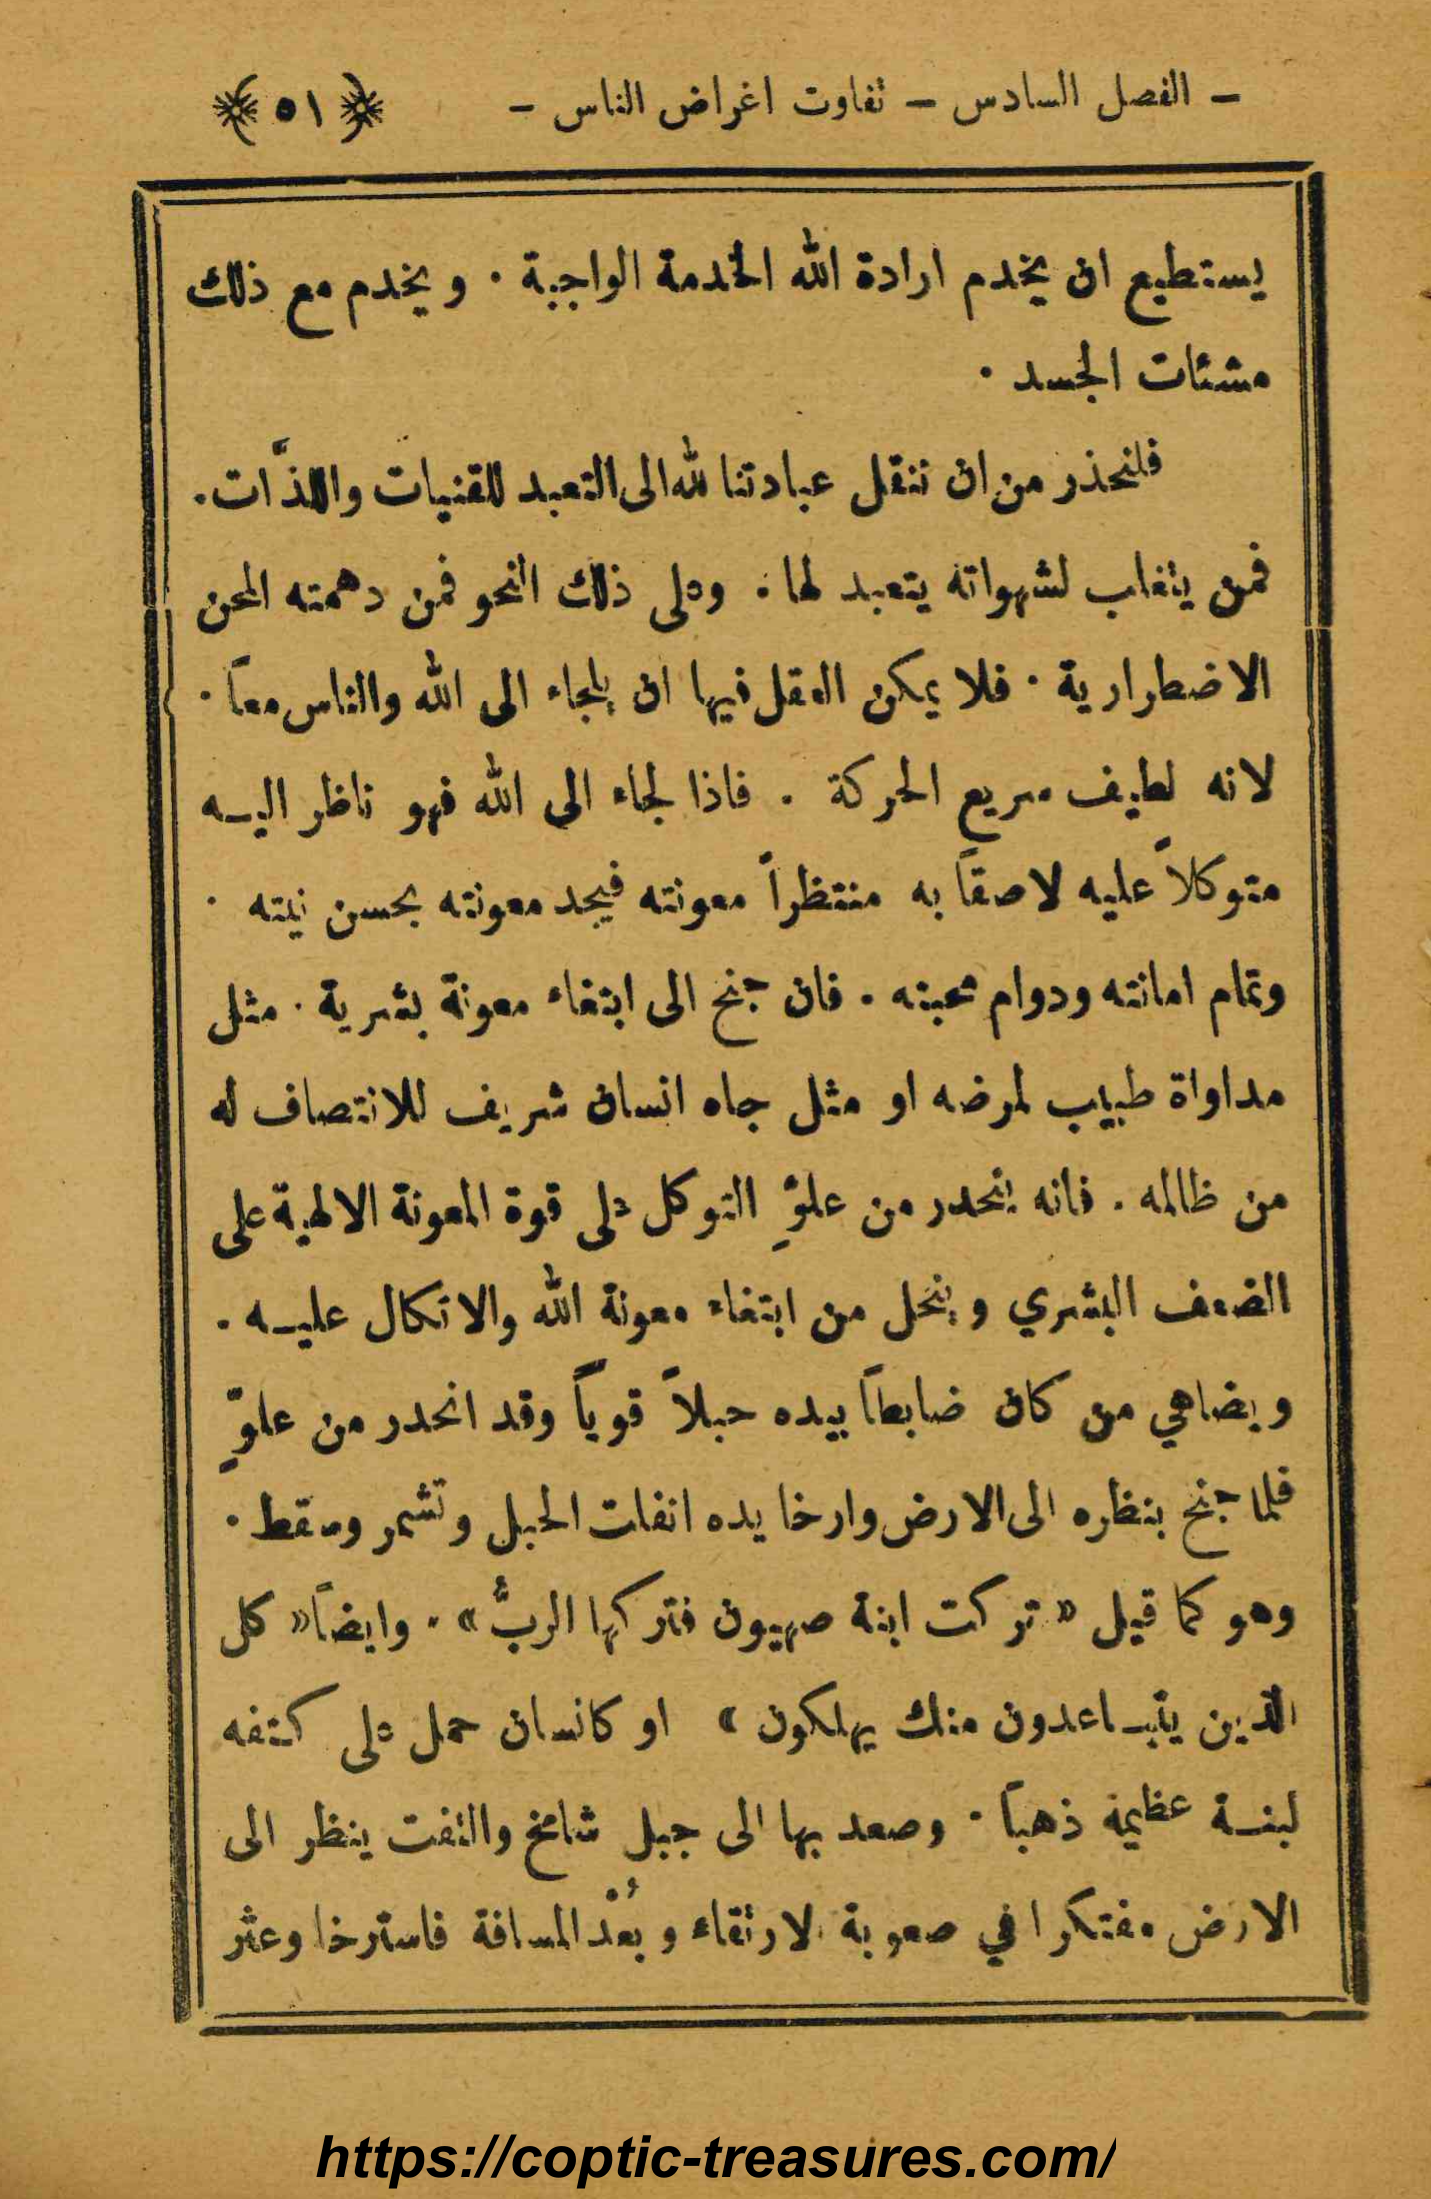 – الفصل السادس – تفاوت اغراض الناس – ﴿ ٥١ ﴾
يستطيع ان يخدم ارادة الله الخدمة الواجبة . ويخدم مع ذلك
مشئات الجسد .
فلنحذر من ان ننقل عبادتنا لله الى التعبد للقنيات واللذَّات .
فمن ينغلب لشهواته يتعبد لها . وعلى ذلك النحو فمن دهمته المحن
الاضطرارية . فلا يمكن العقل فيها ان يلجاء الى الله والناس معاً .
لانه لطيف سريع الحركة . فاذا لجاء الى الله فهو ناظر اليـه
متوكلاً عليه لاصقاً به منتظراً معونته فيجد معونته بحسن نيته .
وتمام امانته ودوام محبته . فان جنح الى ابتغاء معونة بشرية . مثل
مداواة طبيب لمرضه او مثل جاه انسان شريف للانتصاف له
من ظالمه . فانه ينحدر من علوِّ التوكل على قوة المعونة الالهية على
الضعف البشري وينحل من ابتغاء معونة الله والاتكال عليـه .
ويضاهي من كان ضابطاً بيده حبلاً قوياً وقد انحدر من علوٍّ
فلما جنح بنظره الى الارض وارخا يده انفلت الحبل وتشمر وسقط .
وهو كما قيل « تركت ابنة صهيون فتركها الربُّ » . وايضاً « كل
الذين يتبـاعدون منك يهلكون » او كانسان حمل على كتفه
لبنـة عظيمة ذهباً . وصعد بها الى جبل شامخ والتفت ينظر الى
الارض مفتكرا في صعوبة الارتقاء وبُعْد المسافة فاسترخا وعثر
https://coptic-treasures.com/